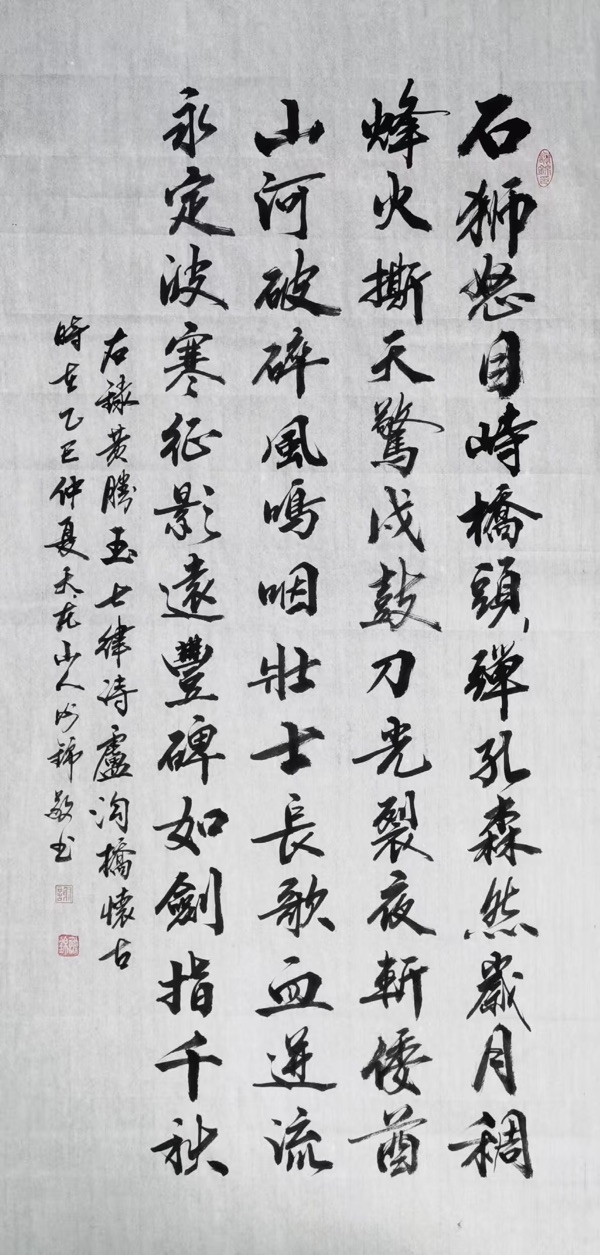 石獅怒目峙橋頭彈孔森然歲月稠
烽火撕天驚戍鼓刀光裂夜斬倭酋
山河破碎風嗚咽壯士長歌血迸流
永定波寒征影遠豐碑如劍指千秋
右錄黃騰玉七律詩盧沟橋懷古
時在乙巳仲夏天龙山人錦敬书